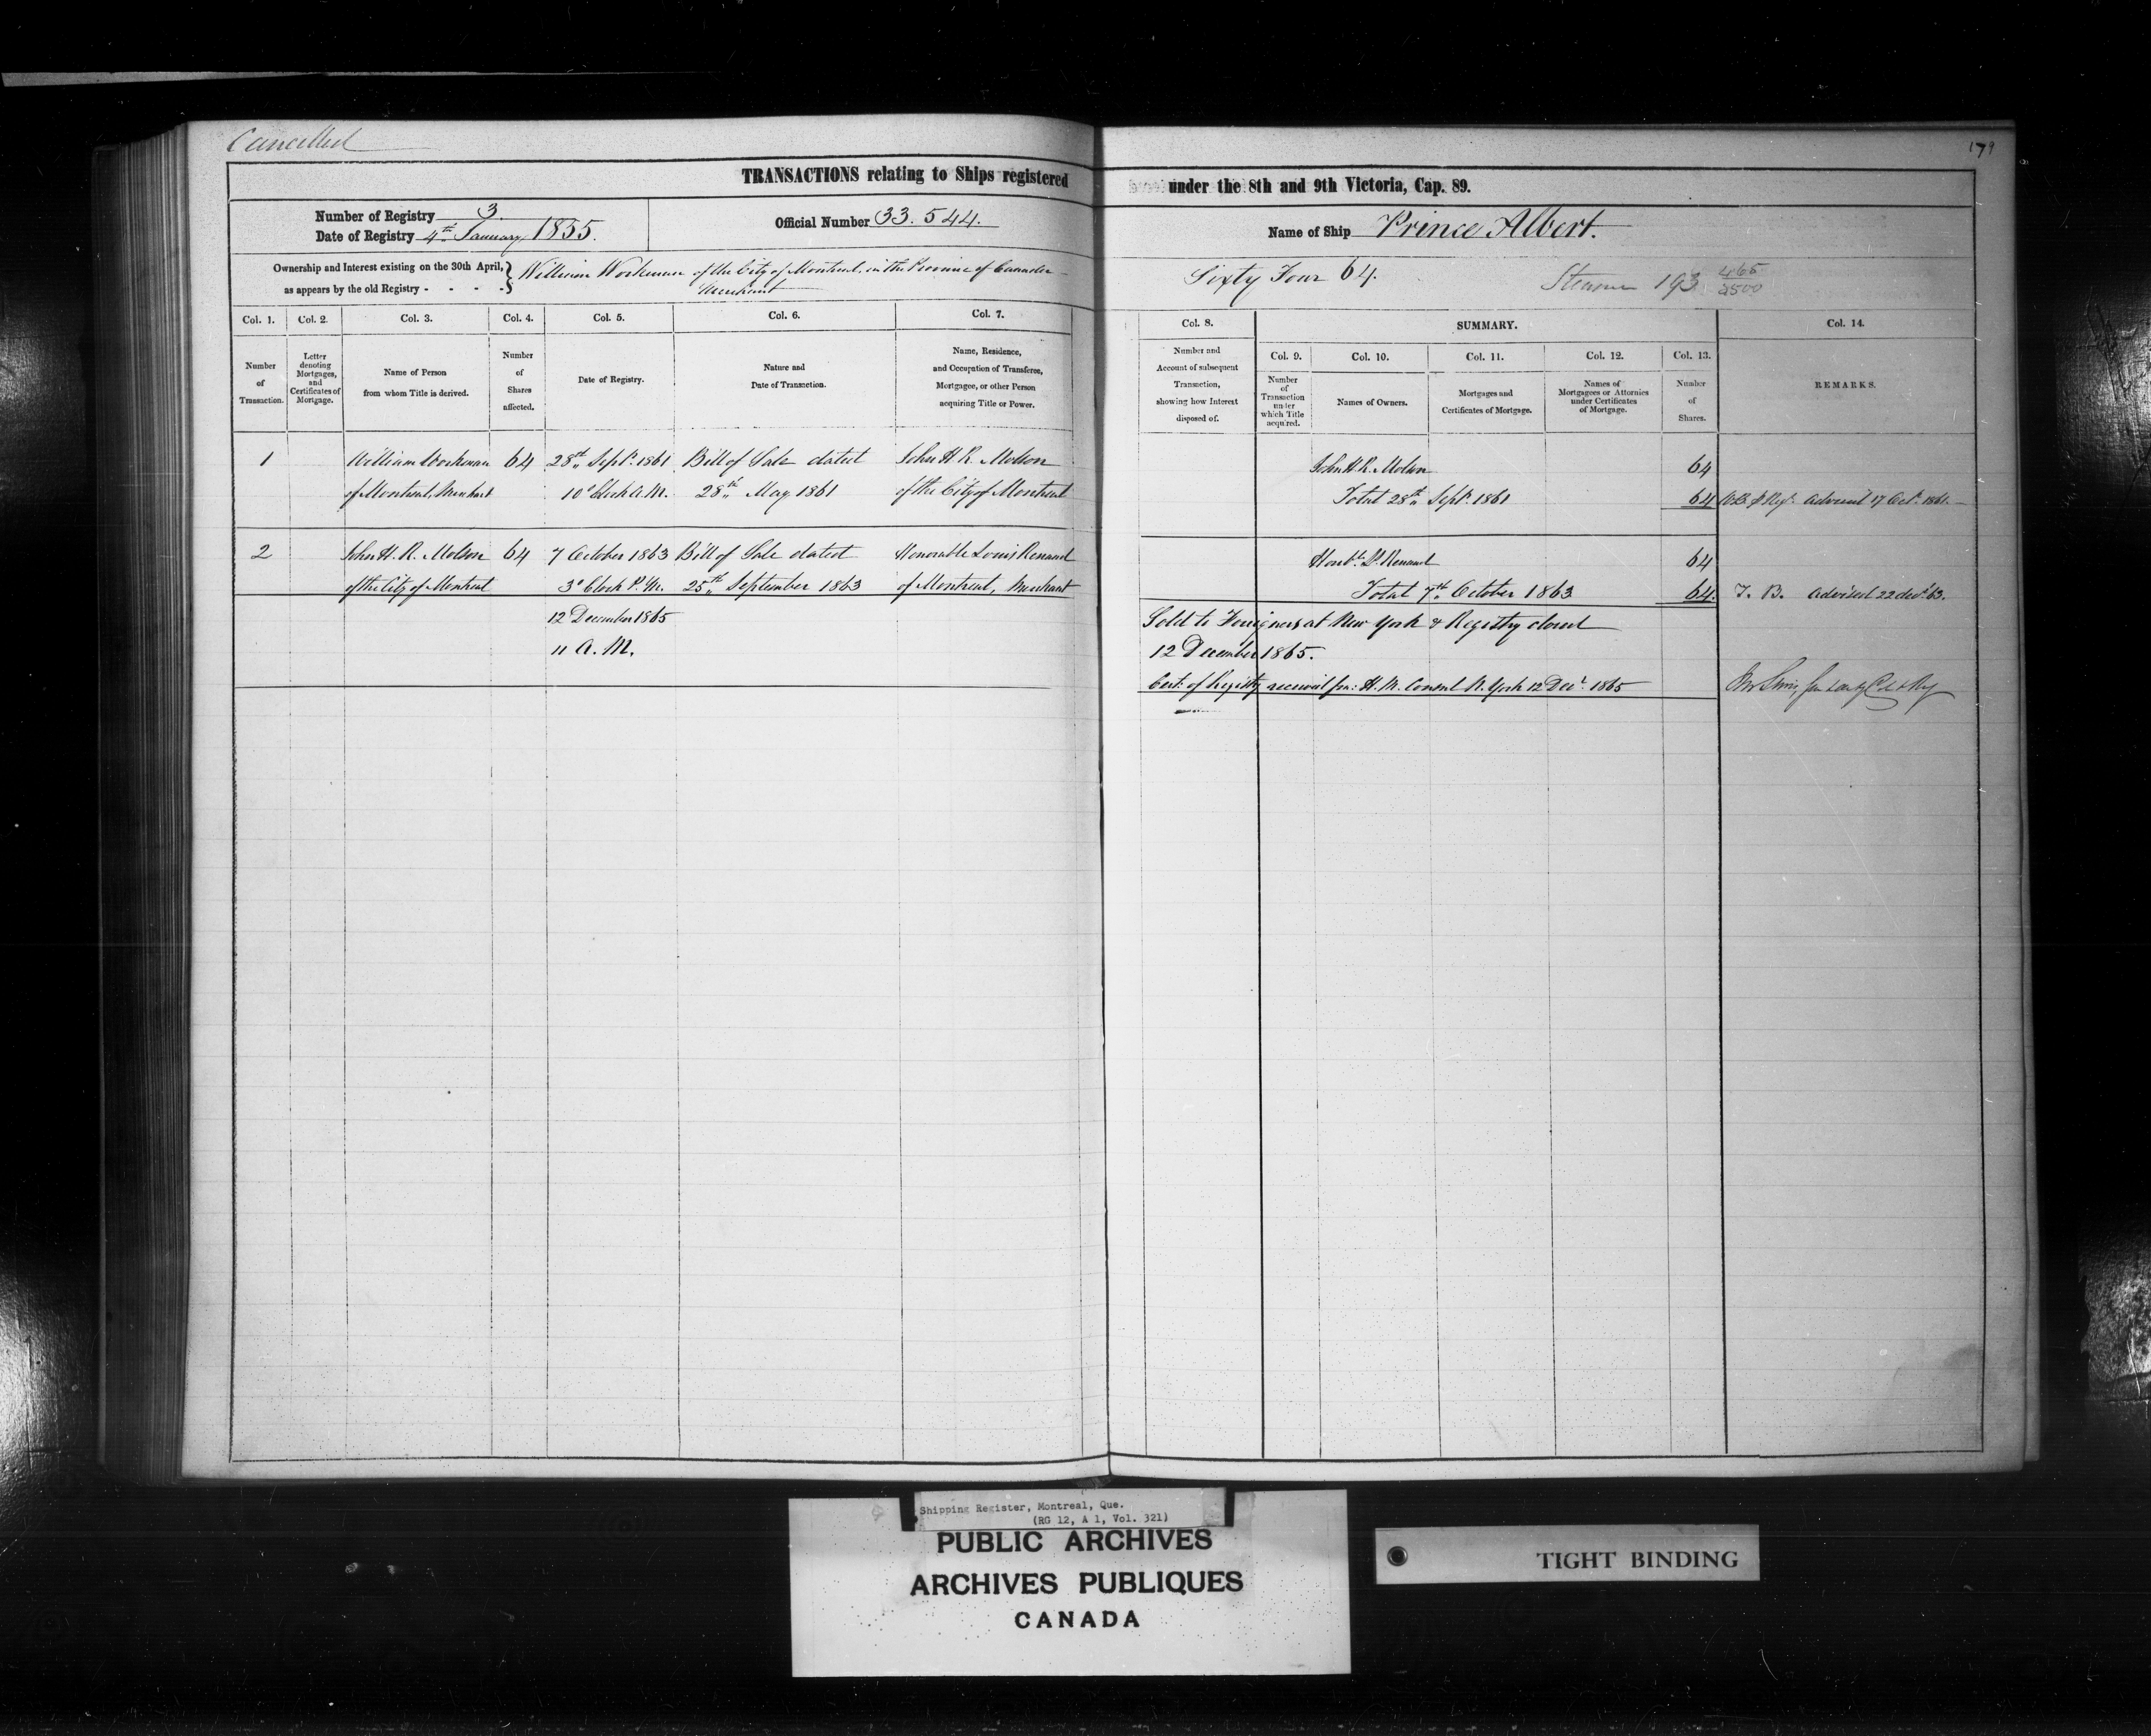 Cancelled
179
TRANSACTIONS relating to Ships registered under the 8th and 9th Victoria, Cap. 89.
Number of Registry 3.
Date of Registry 4th January 1855.
Official Number 33.544.
Name of Ship Prince Albert.
Ownership and Interest existing on the 30th April, as appears by the old Registry - - - -
William Workman of the City of Montreal, in the Province of Canada
Merchant
Sixty Four 64.
Steamer 193 465/2500
Col. 1. Col. 2. Col. 3. Col. 4. Col. 5. Col. 6. Col. 7. Col. 8. SUMMARY. Col. 14.
Col. 9. Col. 10. Col. 11. Col. 12. Col. 13.
Number of Transaction.
Letter denoting Mortgages, and Certificates of Mortgage.
Name of Person from whom Title is derived.
Number of Shares affected.
Date of Registry.
Nature and Date of Transaction.
Name, Residence, and Occupation of Transferee, Mortgagee, or other Person acquiring Title or Power.
Number and Account of subsequent Transaction, showing how Interest disposed of.
Number of Transaction under which Title acquired.
Names of Owners.
Mortgages and Certificates of Mortgage.
Names of Mortgagees or Attornies under Certificates of Mortgage.
Number of Shares.
REMARKS.
1 William Workman 64 28th Sept. 1861 Bill of Sale dated John H. R. Molson John H. R. Molson 64
of Montreal, Merchant 10 o'Clock A.M. 28th May 1861 of the City of Montreal Total 28th Sept. 1861 64 advised 17 Oct. 1861.
2 John H. R. Molson 64 7 October 1863 Bill of Sale dated Honorable Louis Renaud Honble. L. Renaud 64
of the City of Montreal 3 o'Clock P.M. 25th September 1863 of Montreal, Merchant Total 7th October 1863 64. T. B. advised 22 dec. 63.
12 December 1865 Sold to Foreigners at New York & Registry closed
11 A.M. 12 December 1865.
Cert. of Registry received fm: H. M. Consul N. York 12 Decr. 1865
Shipping Register, Montreal, Que.
(RG 12, A 1, Vol. 321)
PUBLIC ARCHIVES
ARCHIVES PUBLIQUES
CANADA
TIGHT BINDING